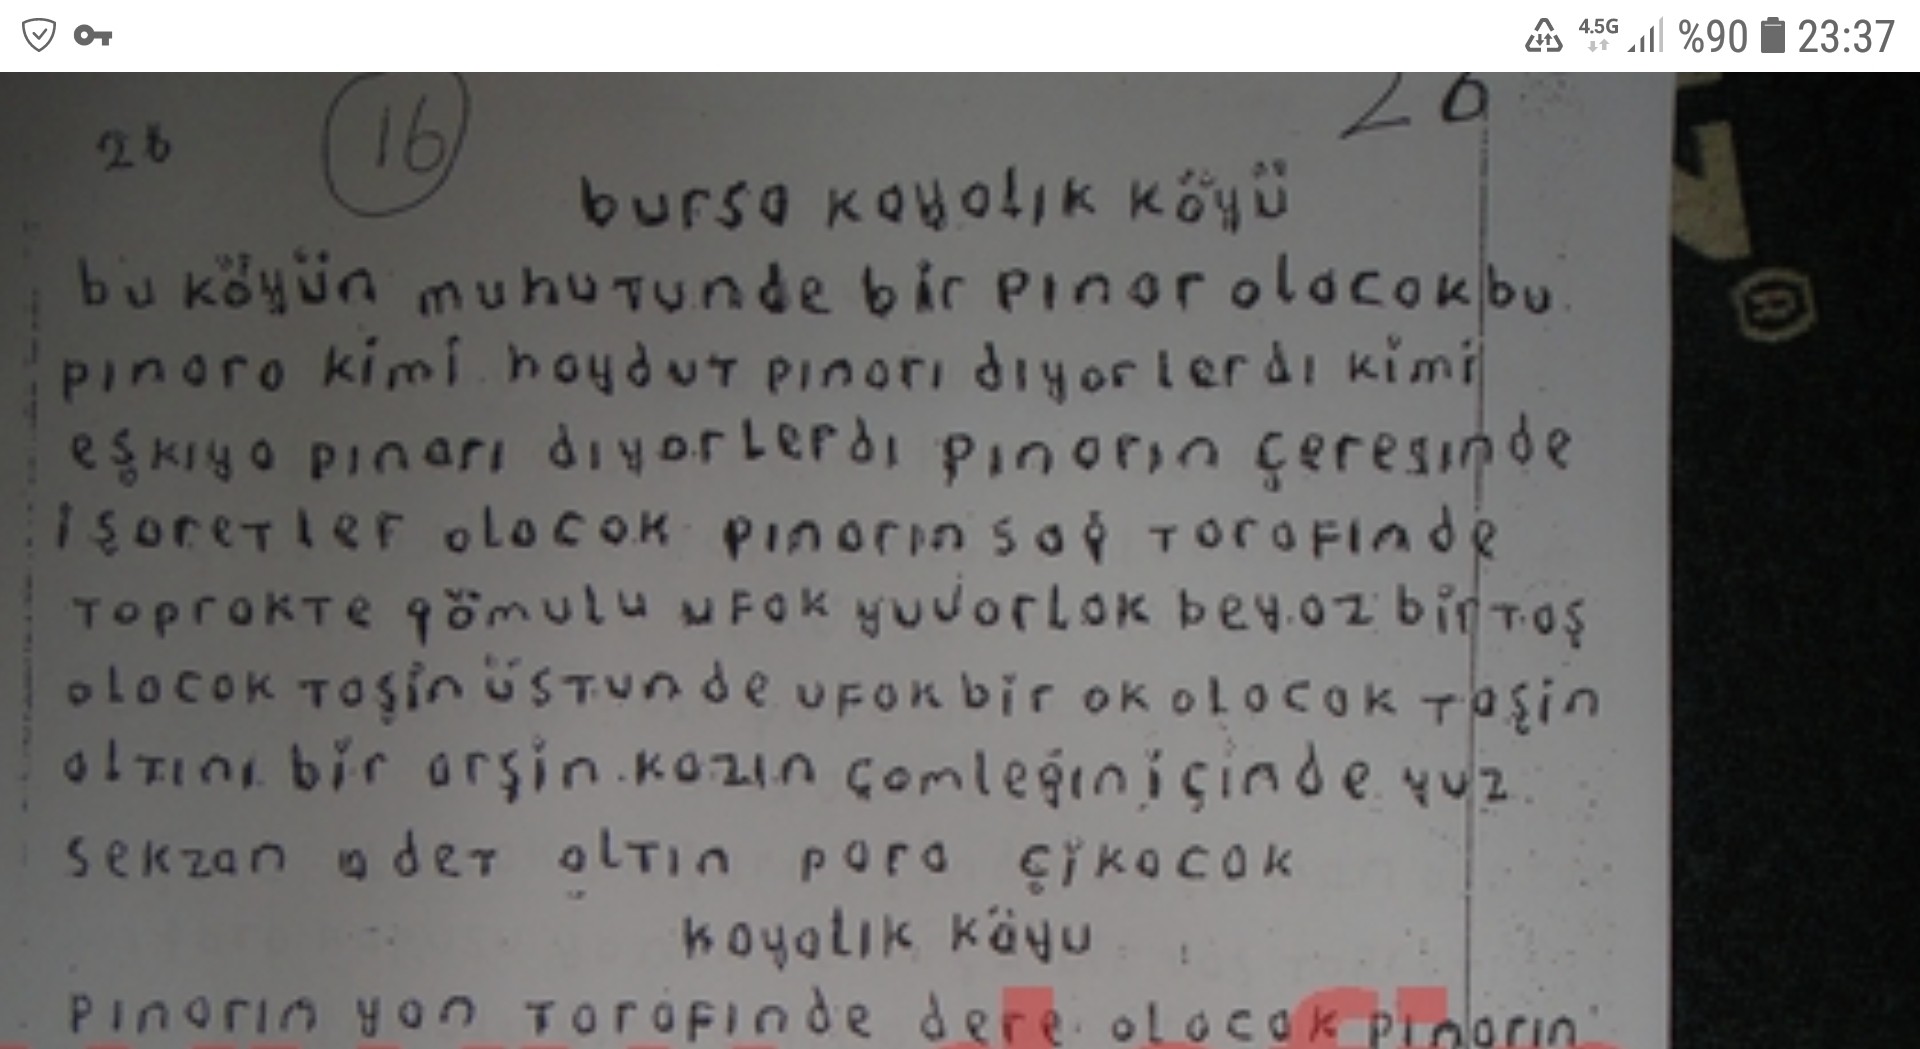 4.5G %90 23:37
26 16 26
bursa kayalık köyü
bu köyün muhutunde bir pınar olacak bu
pınara kimi haydut pınarı dıyorlerdı kimi
eşkıya pınarı dıyorlerdı pınarın çeresınde
işaretler olacak pınarın sağ tarafınde
toprakte gömulu ufak yuvarlak beyaz bir taş
olacak taşin üstunde ufak bir ok olacak taşin
altını bir arşin kazın çomleğın içinde yuz
sekzan adet altın para çikacak
kayalık köyu
pınarın yan tarafınde dere olacak pınarın